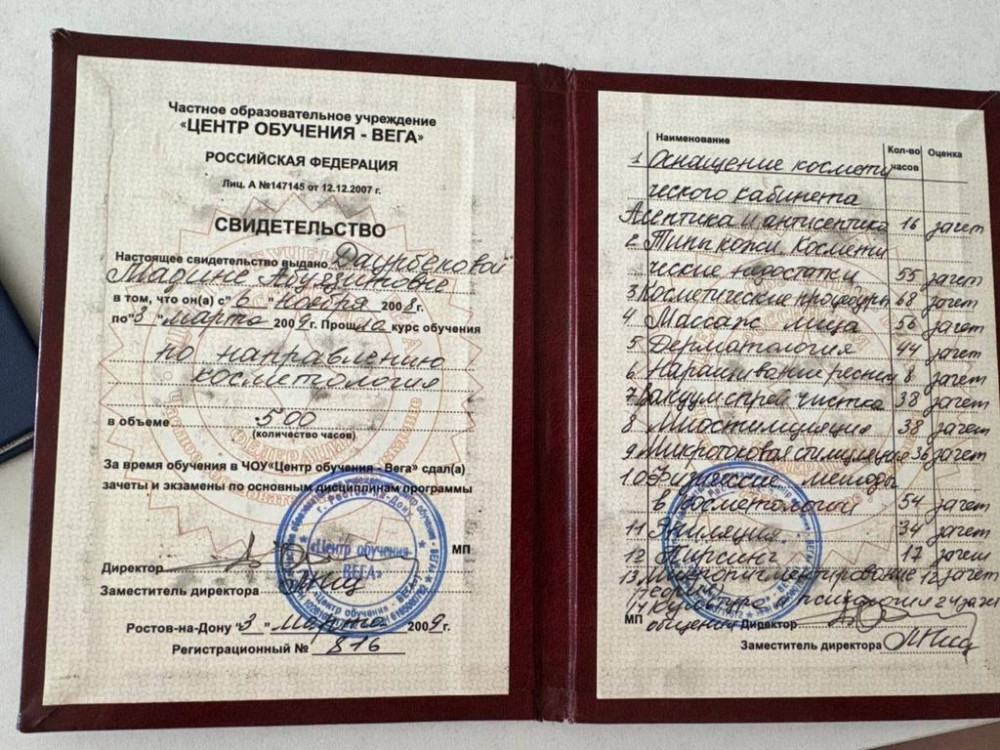 Частное образовательное учреждение
«ЦЕНТР ОБУЧЕНИЯ - ВЕГА»
РОССИЙСКАЯ ФЕДЕРАЦИЯ
Лиц. А №147145 от 12.12.2007 г.
СВИДЕТЕЛЬСТВО
Настоящее свидетельство выдано Даурбековой
Мадине Абуязитовне
в том, что он(а) с "6" ноября 2008г.
по "3" марта 2009г. Прошла курс обучения
по направлению
косметология
в объеме 500
(количество часов)
За время обучения в ЧОУ«Центр обучения - Вега» сдал(а)
зачеты и экзамены по основным дисциплинам программы
г. Ростов-на-Дону
«Центр обучения-
ВЕГА»
МП
Директор
Заместитель директора
Ростов-на-Дону "3" марта 2009г.
Регистрационный № 816
Наименование Кол-во часов Оценка
1 Оснащение космети
ческого кабинета
Асептика и антисептика 16 зачет
2 Типы кожи. Космети
ческие недостатки 55 зачет
3 Косметические процедуры 68 зачет
4 Массаж лица 56 зачет
5 Дерматология 44 зачет
6 Наращивание ресниц 8 зачет
7 Вакуум спрей чистка 38 зачет
8 Миостимуляция 38 зачет
9 Микротоковая стимуляция 36 зачет
10 Физические методы
в косметологии 54 зачет
11 Эпиляция 34 зачет
12 Пирсинг 17 зачет
13 Микропигментирование 12 зачет
психология 24 зачет
14 Культура
общения
МП Директор
Заместитель директора